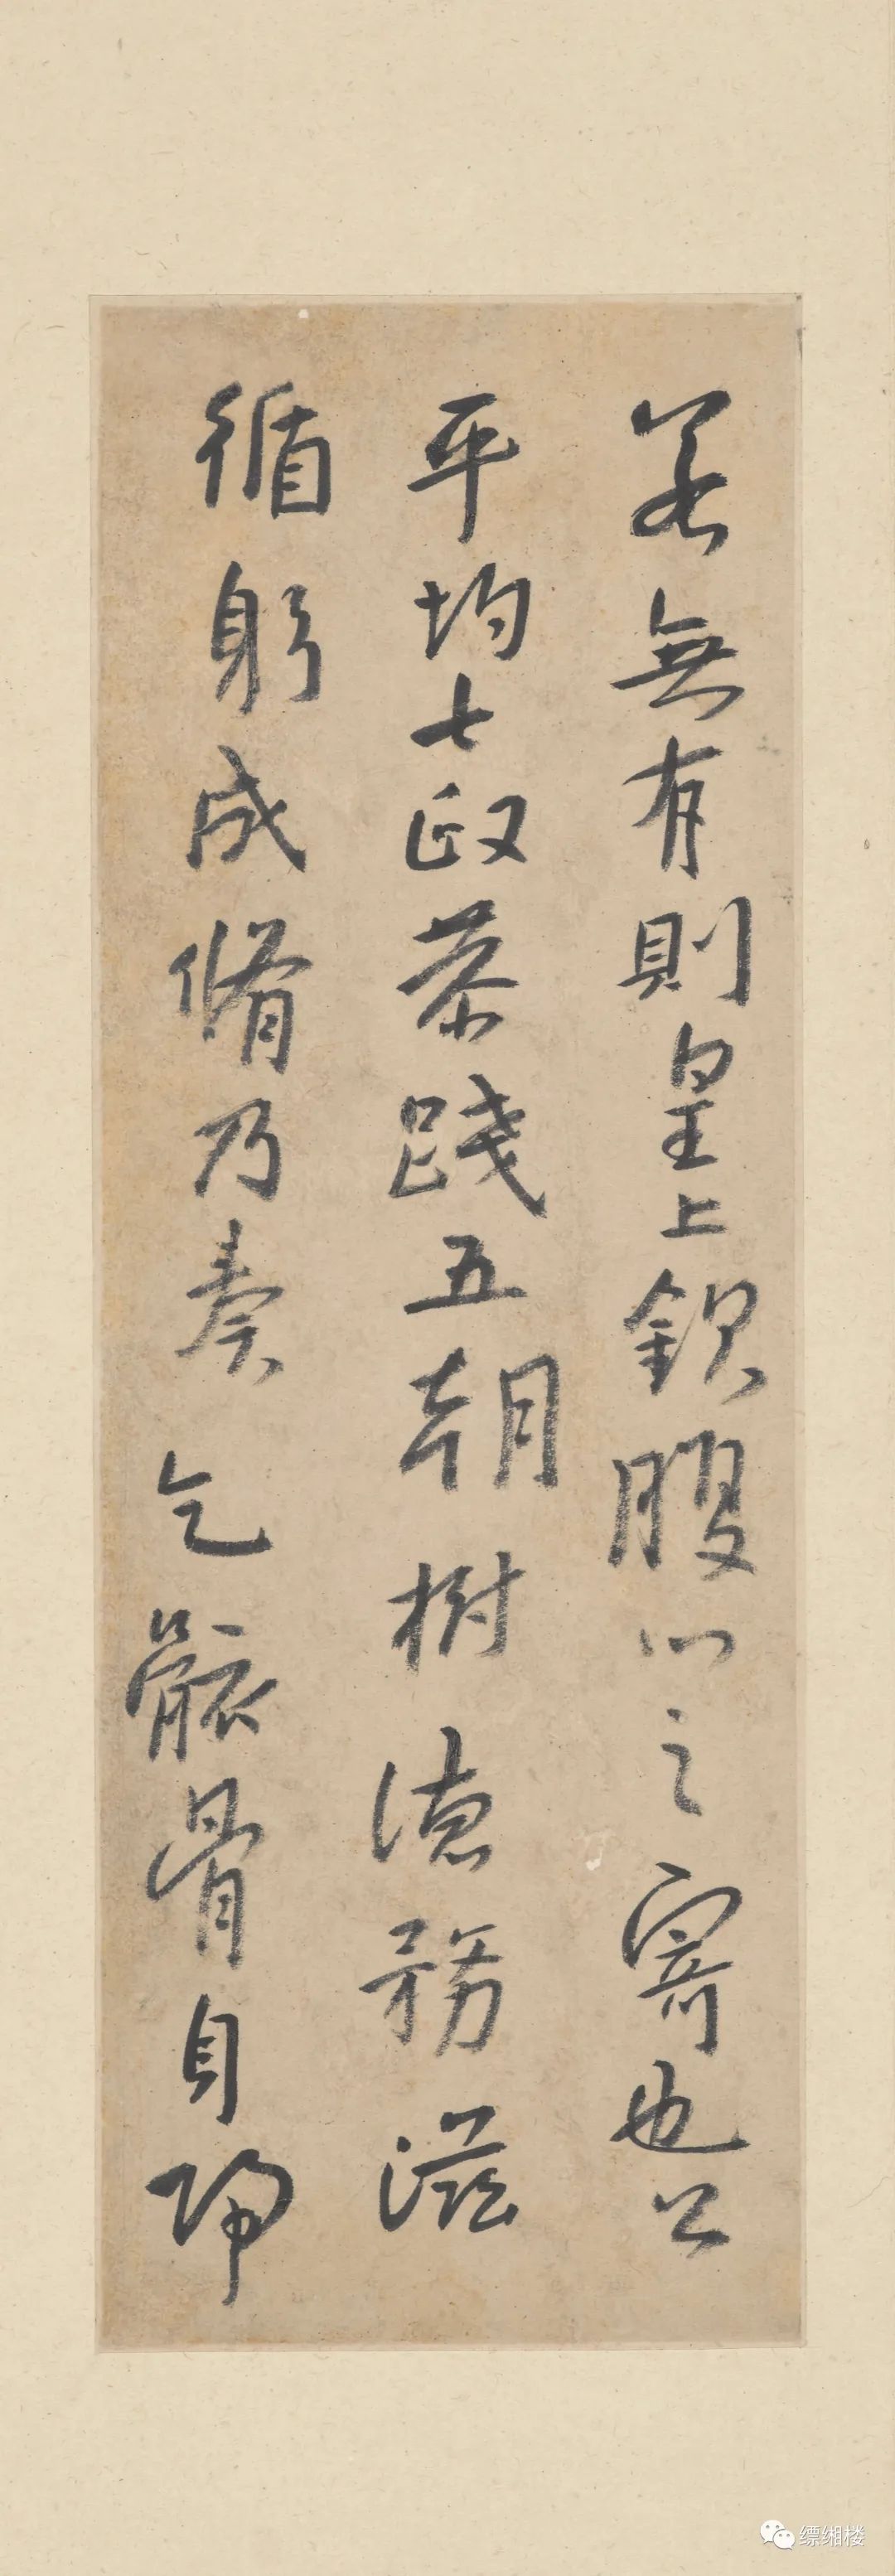 若無有則皇上欽腹心之寄也公
平均七政恭踐五朝樹德務滋
循躬成脩乃奏乞骸骨自歸
缥缃楼